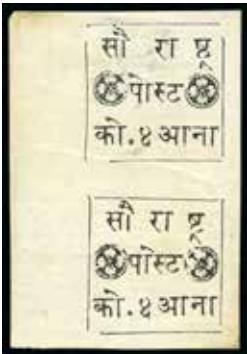 सौ रा ष्ट्र
पोस्ट
को.४ आना
सौ रा ष्ट्र
पोस्ट
को.४ आना